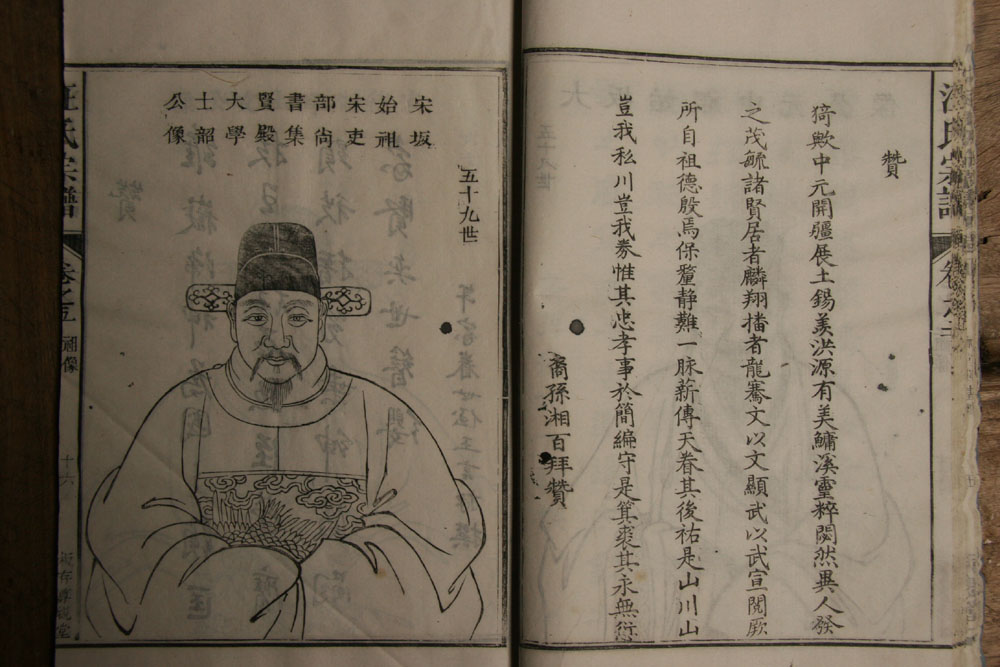 贊
猗歟中元開疆展土錫羡洪源有美鱅溪靈粹闕然異人發
之茂毓諸賢居者麟翔播者龍騫文以文顯武以武宣閱厥
所自祖德殷焉保釐静難一脉薪傳天眷其後祐是山川山
豈我私川豈我劵惟其忠孝事於簡編守是箕裘其永無愆
裔孫湘百拜贊
宋坂
始祖
宋吏
部尚
書集
賢殿
大學
士韶
公像
五十九世
汪氏宗譜
卷之五
像
十六